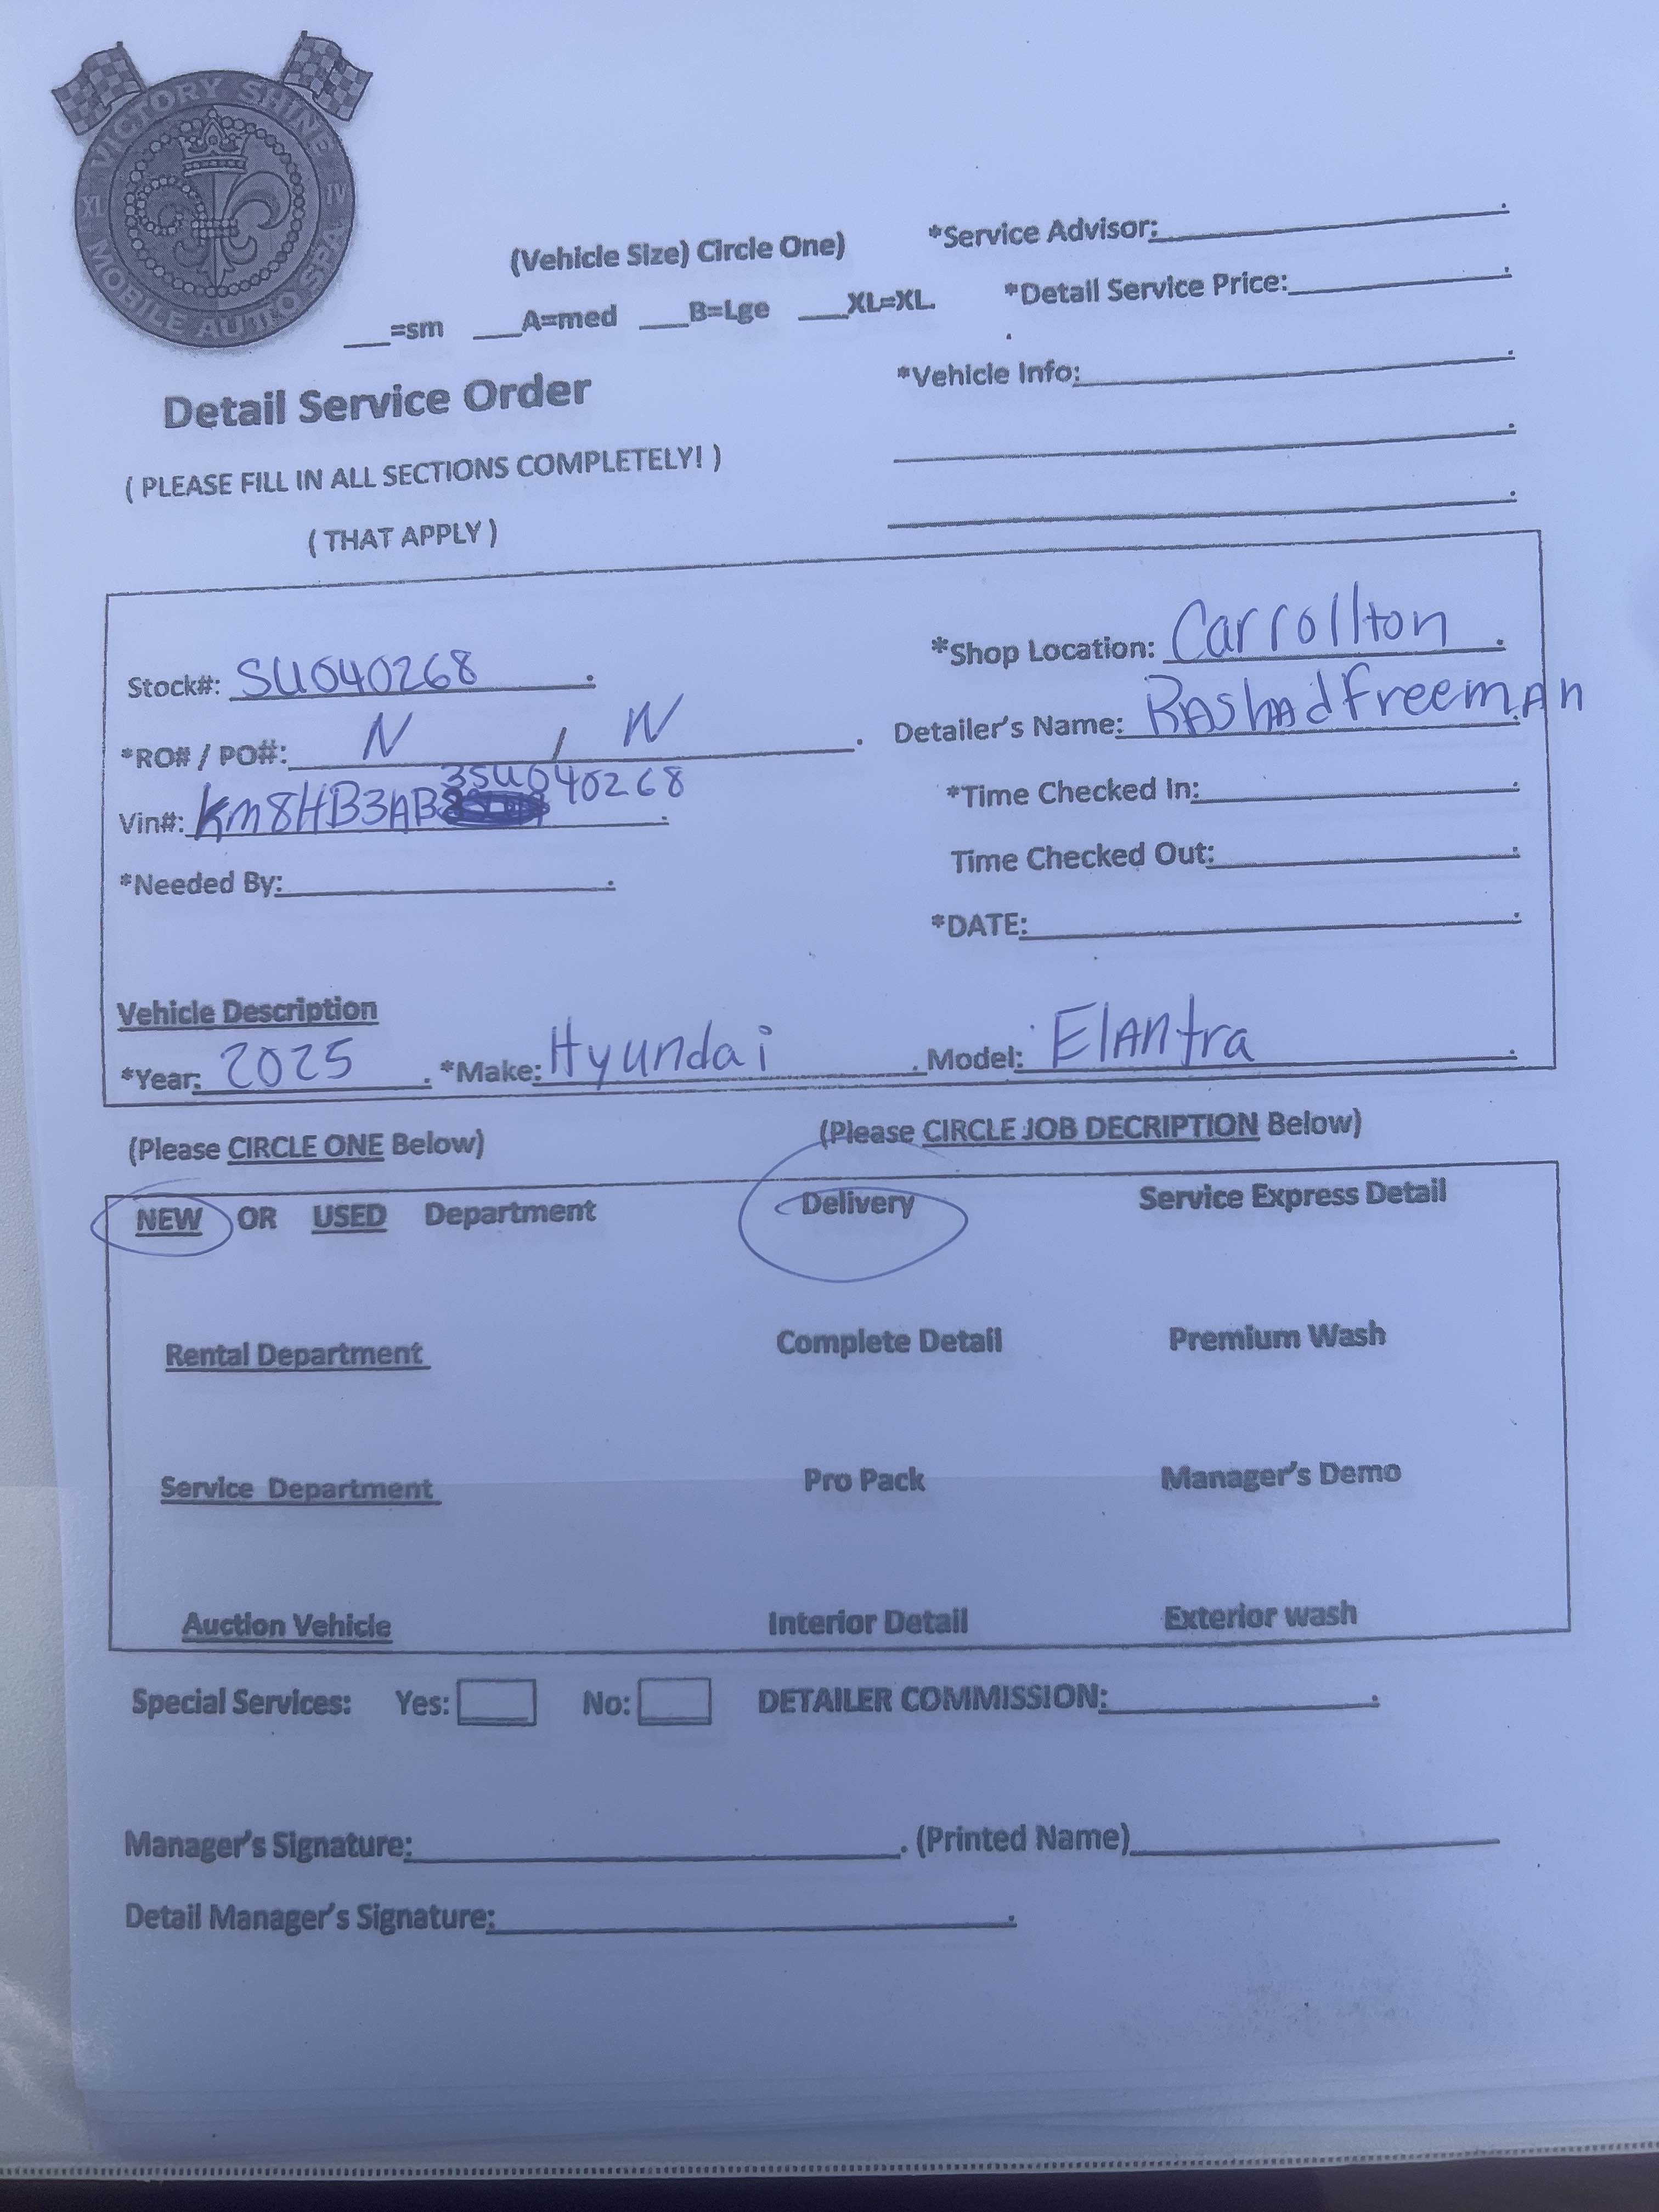 VICTORY SHINE
XL IV
MOBILE AUTO SPA
(Vehicle Size) Circle One)
___=sm ___A=med ___B=Lge ___XL=XL.
*Service Advisor:
*Detail Service Price:
*Vehicle Info:
Detail Service Order
( PLEASE FILL IN ALL SECTIONS COMPLETELY! )
( THAT APPLY )
Stock#: SU040268
*Shop Location: Carrollton
*RO# / PO#: N / N
Detailer's Name: RAShAd FreemAn
Vin#: Km8HB3AB3SU040268
*Time Checked In:
Time Checked Out:
*Needed By:
*DATE:
Vehicle Description
*Year: 2025 *Make: Hyundai Model: ElAntra
(Please CIRCLE ONE Below) (Please CIRCLE JOB DECRIPTION Below)
NEW OR USED Department Delivery Service Express Detail
Rental Department Complete Detail Premium Wash
Service Department Pro Pack Manager's Demo
Auction Vehicle Interior Detail Exterior wash
Special Services: Yes: No: DETAILER COMMISSION:
Manager's Signature: (Printed Name)
Detail Manager's Signature: